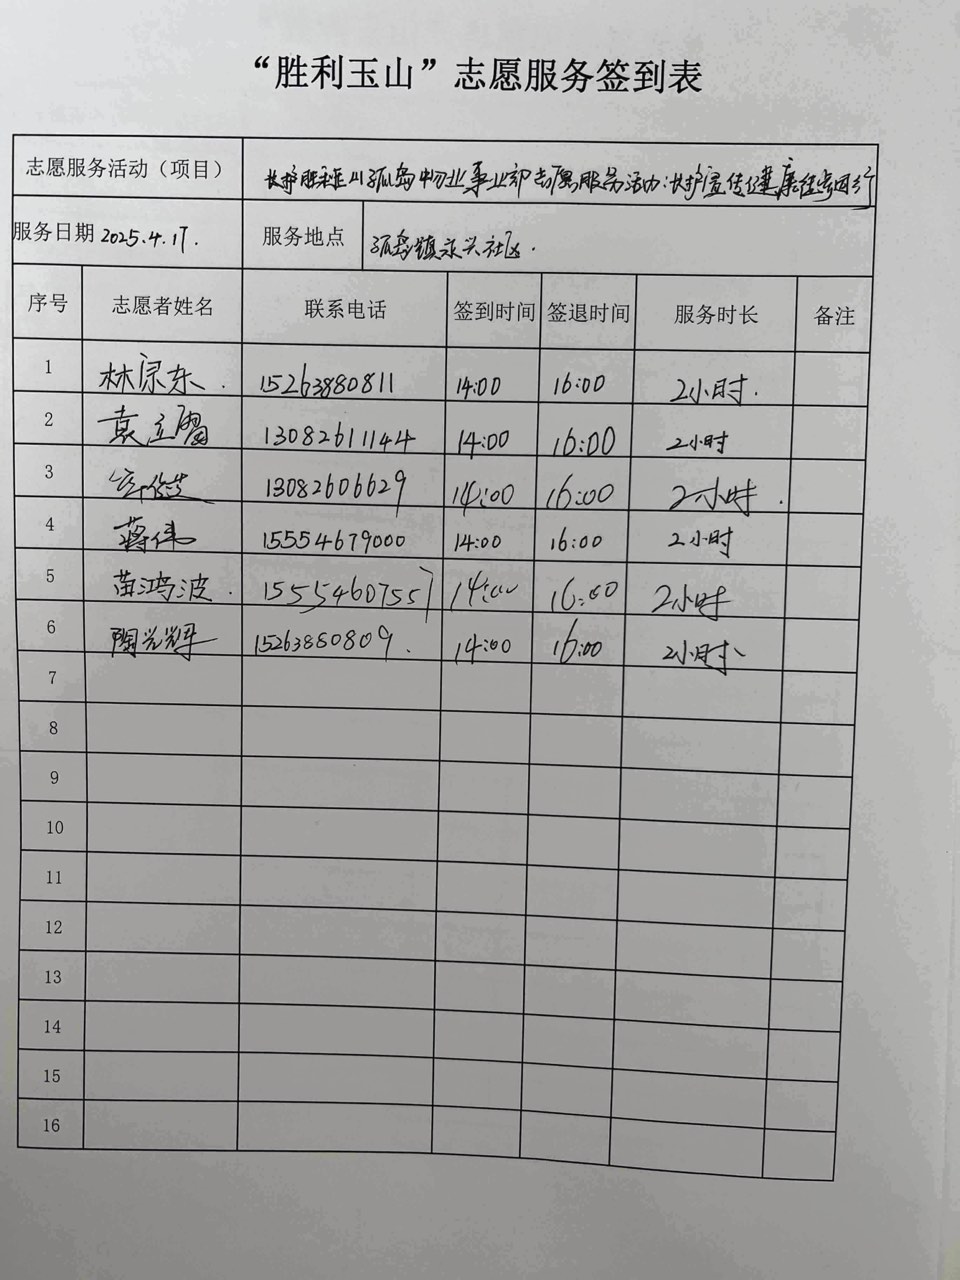 “胜利玉山”志愿服务签到表
志愿服务活动（项目） 长护胜利玉山孤岛物业事业部志愿服务活动：长护宣传健康佳
服务日期 2025.4.17. 服务地点 孤岛镇永兴社区.
序号 志愿者姓名 联系电话 签到时间 签退时间 服务时长 备注
1 林宗东. 15263880811 14:00 16:00 2小时.
2 袁立 13082611144 14:00 16:00 2小时
3 13082606629 14:00 16:00 2小时.
4 蒋伟 15554679000 14:00 16:00 2小时
5 苗鸿波. 15554607557 14:00 16:00 2小时
6 陶光辉 15263880809. 14:00 16:00 2小时、
7
8
9
10
11
12
13
14
15
16